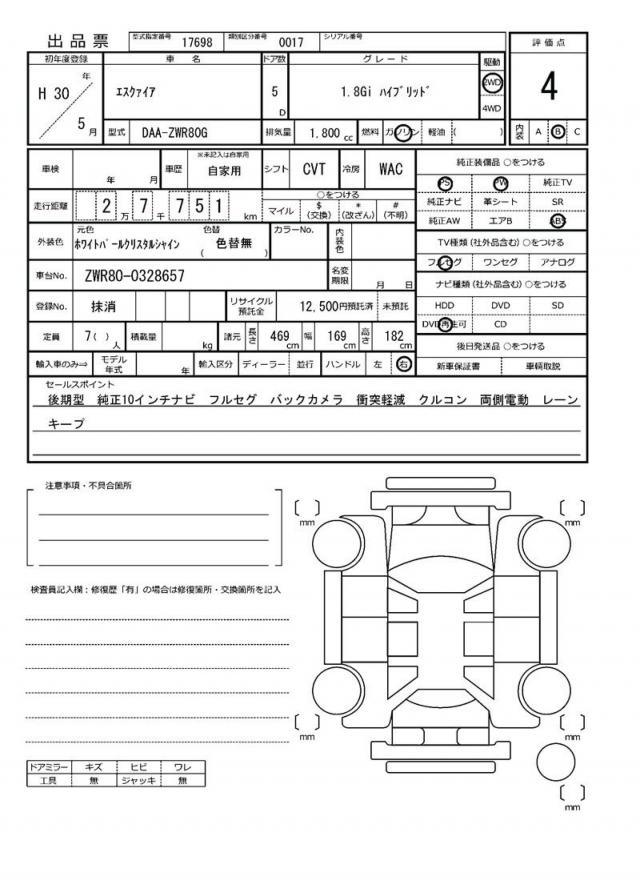 出品票 型式指定番号 17698 類別区分番号 0017 シリアル番号
初年度登録 車名 ドア数 グレード 駆動 評価点
H 30 年 5 月 エスクァイア 5 D 1.8Gi ハイブリッド 2WD 4WD 4
型式 DAA-ZWR80G 排気量 1,800 cc 燃料 ガソリン 軽油 ( ) 内装 A B C
車検 年 月 車歴 ※未記入は自家用 自家用 シフト CVT 冷房 WAC
走行距離 2 万 7 千 7 5 1 km ○をつける マイル $ (交換) * (改ざん) # (不明)
外装色 元色 ホワイトパールクリスタルシャイン 色替 ( 色替無 ) カラーNo. 内装色
車台No. ZWR80-0328657 名変期限 月 日
登録No. 抹消 リサイクル預託金 12,500円預託済 未預託
定員 7( )人 積載量 kg 諸元 長さ 469 cm 幅 169 cm 高さ 182 cm
輸入車のみ⇒ モデル年式 年 輸入区分 ディーラー 並行 ハンドル 左 右
純正装備品 ○をつける
PS PW 純正TV
純正ナビ 革シート SR
純正AW エアB ABS
TV種類(社外品含む)○をつける
フルセグ ワンセグ アナログ
ナビ種類(社外品含む)○をつける
HDD DVD SD
DVD再生可 CD
後日発送品 ○をつける
新車保証書 車輌取説
セールスポイント
後期型 純正10インチナビ フルセグ バックカメラ 衝突軽減 クルコン 両側電動 レーン
キープ
注意事項・不具合箇所
検査員記入欄:修復歴「有」の場合は修復箇所・交換箇所を記入
ドアミラー キズ ヒビ ワレ
工具 無 ジャッキ 無
[ ] mm
[ ] mm
[ ] mm
[ ] mm
[ ] mm